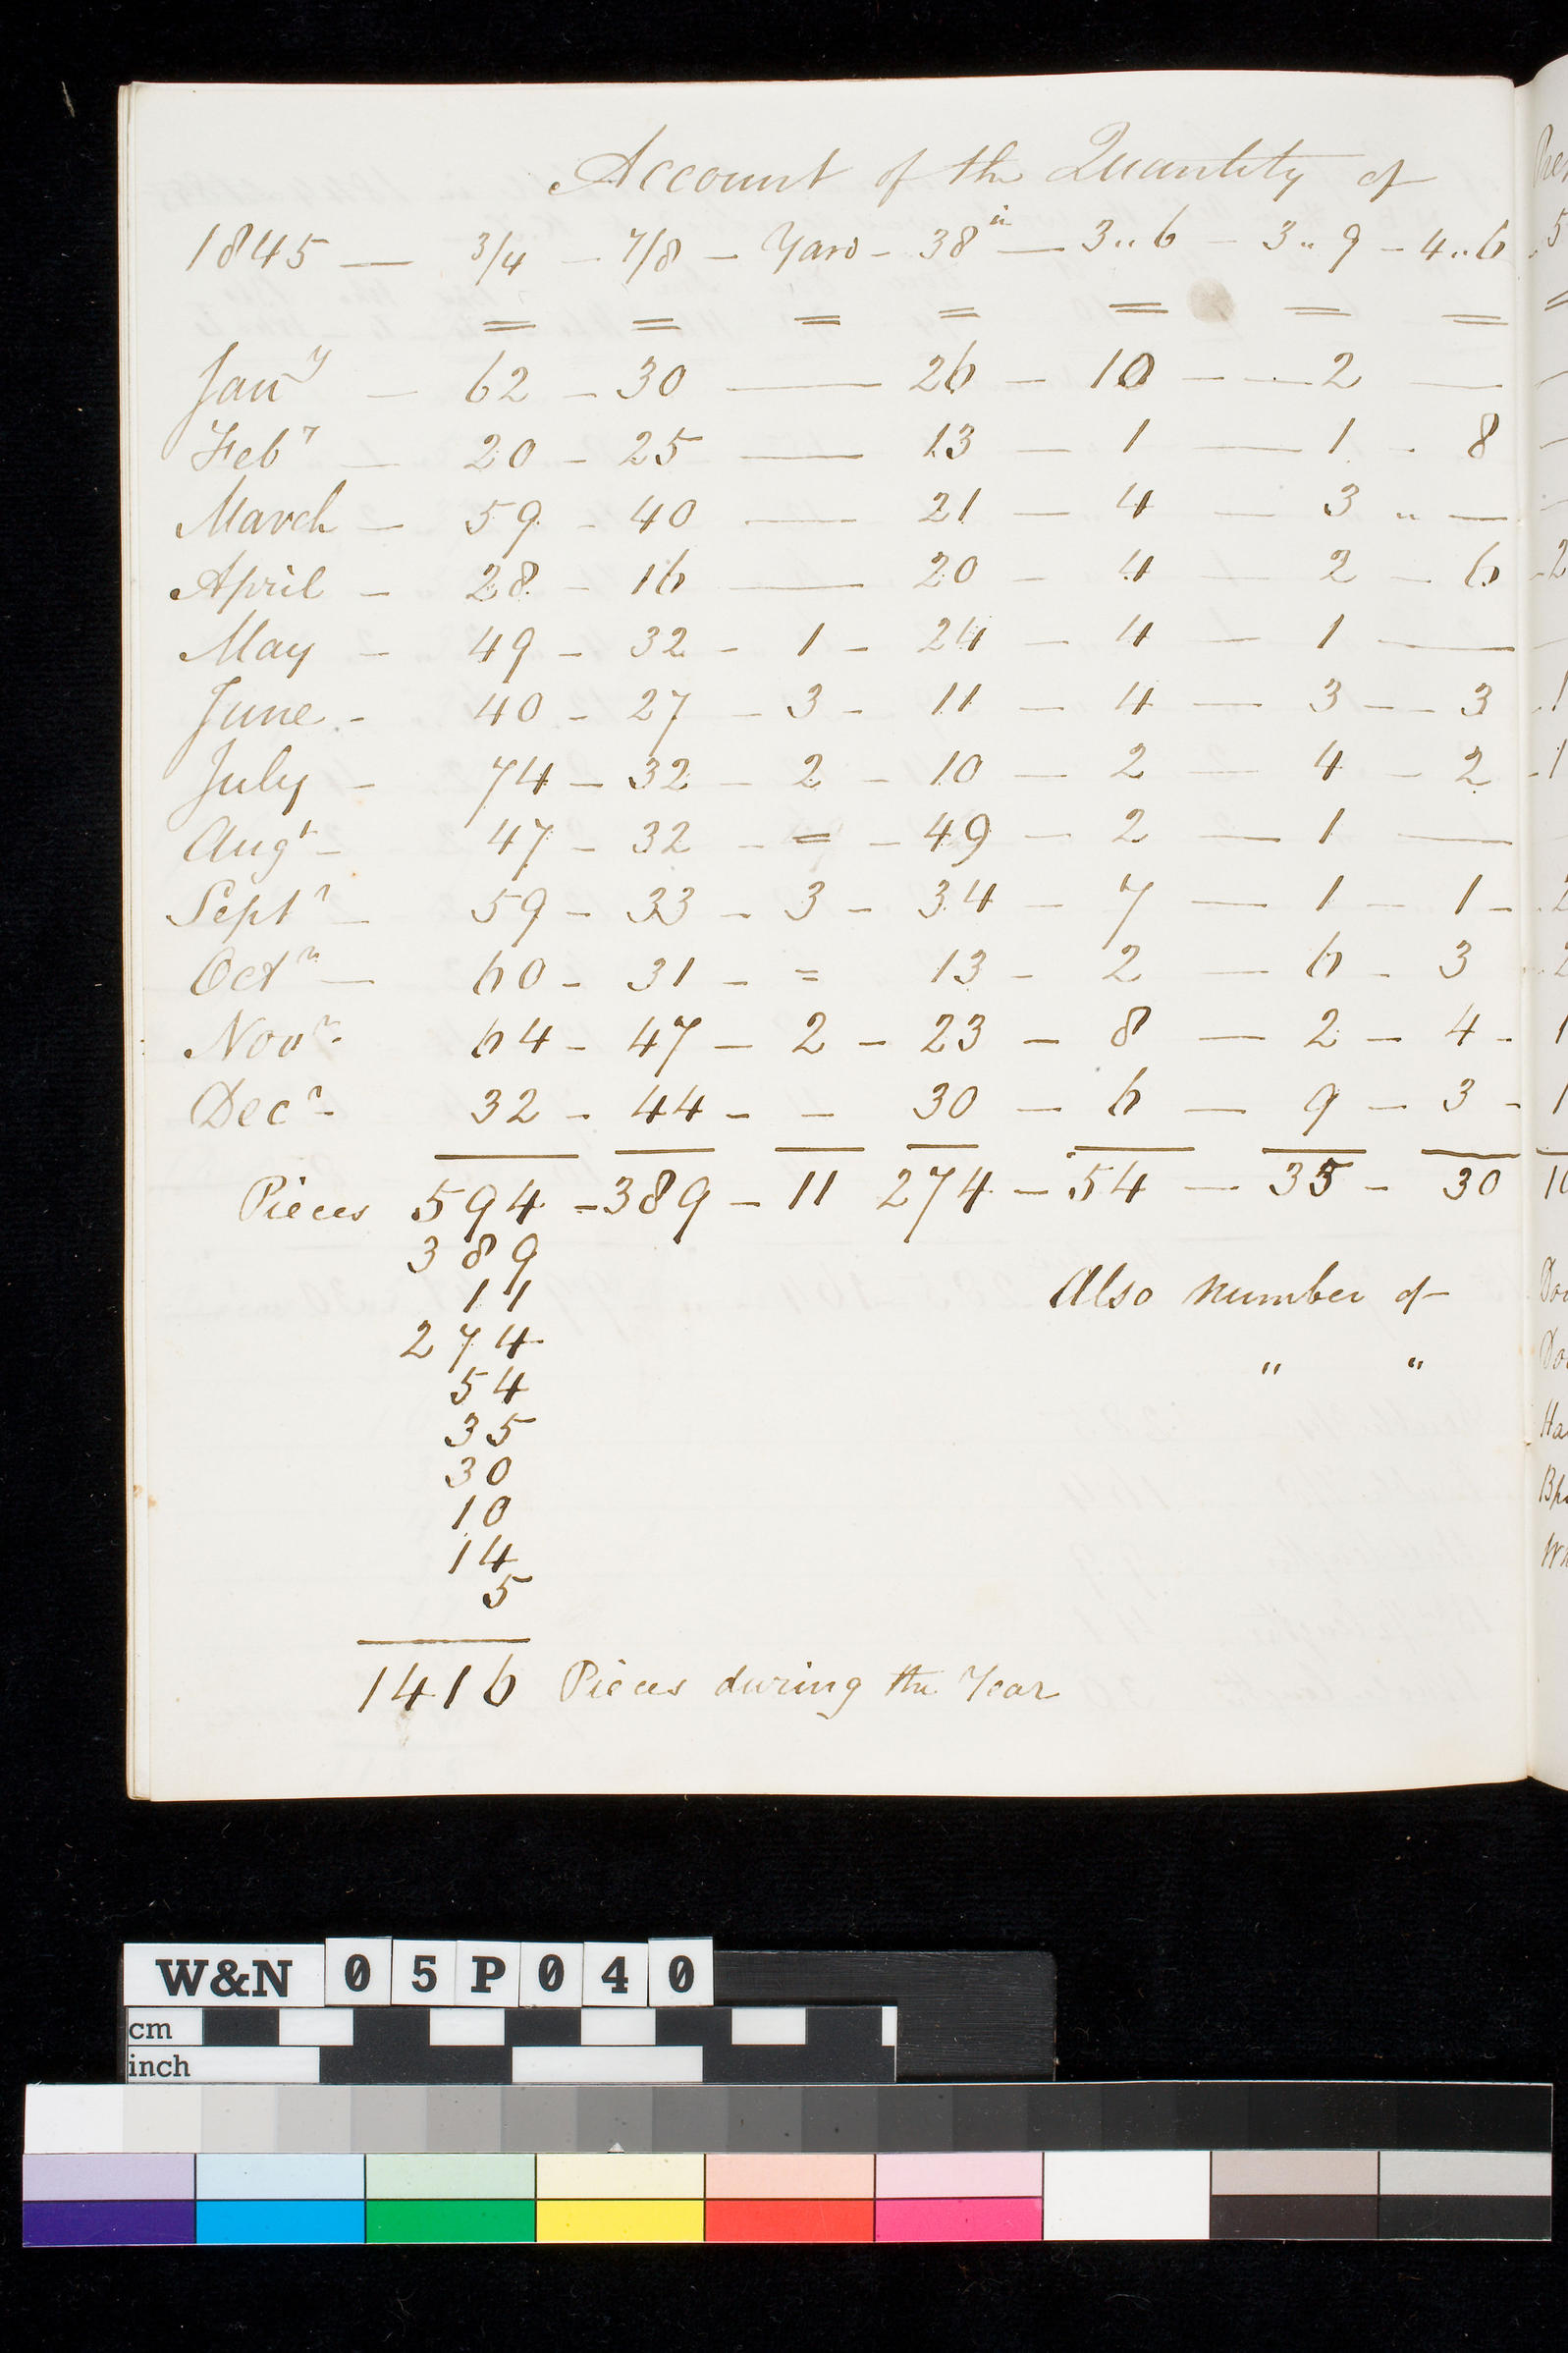 Account of the Quantity of
1845 — 3/4 - 7/8 - Yard - 38 in — 3..6 - 3..9 - 4..6
= = = = = = =
Jany — 62 - 30 — 26 - 10 - - 2 —
Feby — 20 - 25 — 13 - 1 — 1 - 8
March — 59 - 40 — 21 - 4 — 3 .. —
April - 28 - 16 — 20 - 4 — 2 - 6
May - 49 - 32 - 1 - 24 - 4 - 1 —
June - 40 - 27 - 3 - 11 - 4 — 3 - - 3
July - 74 - 32 - 2 - 10 - 2 — 4 - 2
Augt - 47 - 32 - = - 49 - 2 — 1 —
Septr - 59 - 33 - 3 - 34 - 7 — 1 - 1 -
Octr — 60 - 31 - = 13 - 2 — 6 - 3
Novr - 64 - 47 - 2 - 23 - 8 — 2 - 4 -
Decr - 32 - 44 - - 30 - 6 — 9 - 3 -
Pieces 594 - 389 - 11 274 - 54 — 35 - 30
389
11
274
54
35
30
10
14
5
Also number of
" "
1416 Pieces during the Year
W&N 05P040
cm
inch